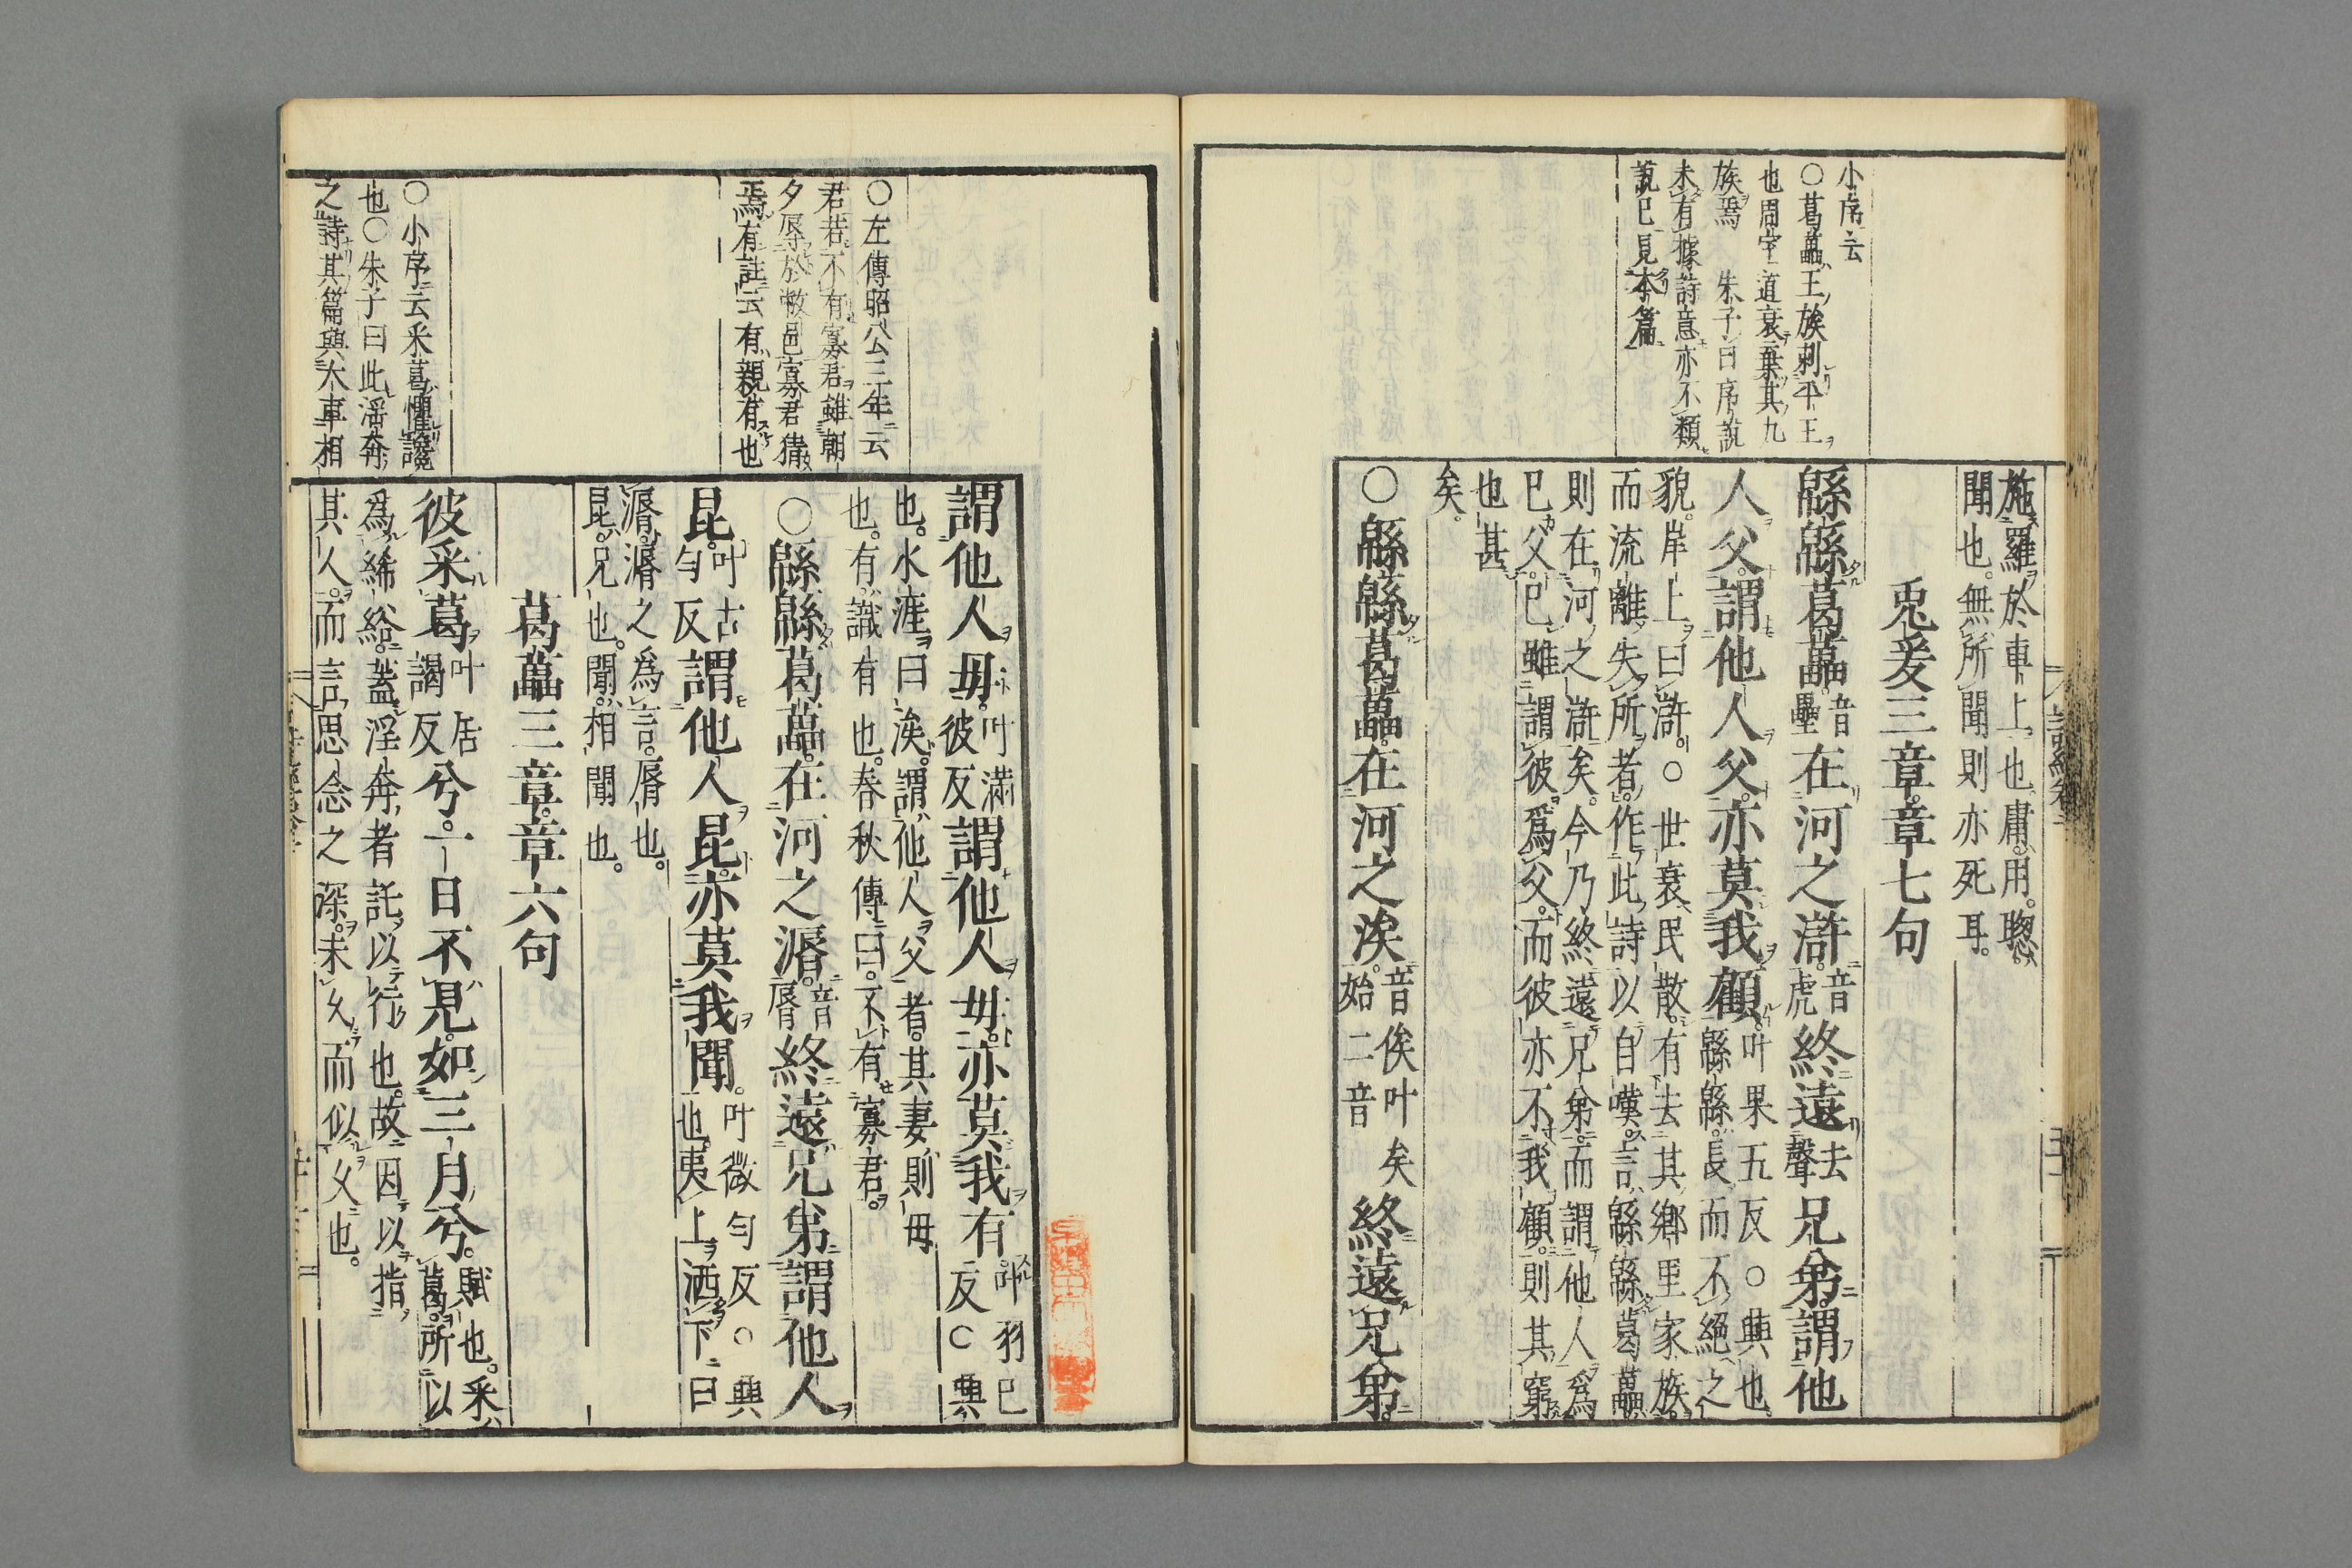 小序云
○葛藟王族刺平王
也周室道衰棄其九
族焉　朱子曰序說
未有據詩意亦不類
說已見本篇
施羅於車上也庸用聰
聞也無所聞則亦死耳
兎爰三章章七句
緜緜葛藟音壘在河之滸音虎終遠去聲兄弟謂他
人父謂他人父亦莫我顧叶果五反○興也
緜緜長而不絕之
貌岸上曰滸○世衰民散有去其鄉里家族
而流離失所者作此詩以自嘆言緜緜葛藟
則在河之滸矣今乃終遠兄弟而謂他人爲
已父已雖謂彼爲父而彼亦不我顧則其窮
也甚
矣
○緜緜葛藟在河之涘音俟叶矣始二音終遠兄弟
○左傳昭公三年云
君若不有寡君雖朝
夕辱於敝邑寡君猜
焉有註云有親有也
○小序云采葛懼讒
也○朱子曰此淫奔
之詩其篇與大車相
謂他人毋叶滿彼反謂他人毋亦莫我有叶羽已反○興
也水涯曰涘謂他人父者其妻則毋
也有識有也春秋傳曰不有寡君
○緜緜葛藟在河之漘音脣終遠兄弟謂他人
昆叶古勻反謂他人昆亦莫我聞叶微勻反○興
也夷上洒下曰
漘漘之爲言脣也
昆兄也聞相聞也
葛藟三章章六句
彼采葛叶居謁反兮一日不見如三月兮賦也采
葛所以
爲絺綌蓋淫奔者託以行也故因以指
其人而言思念之深未乆而似乆也